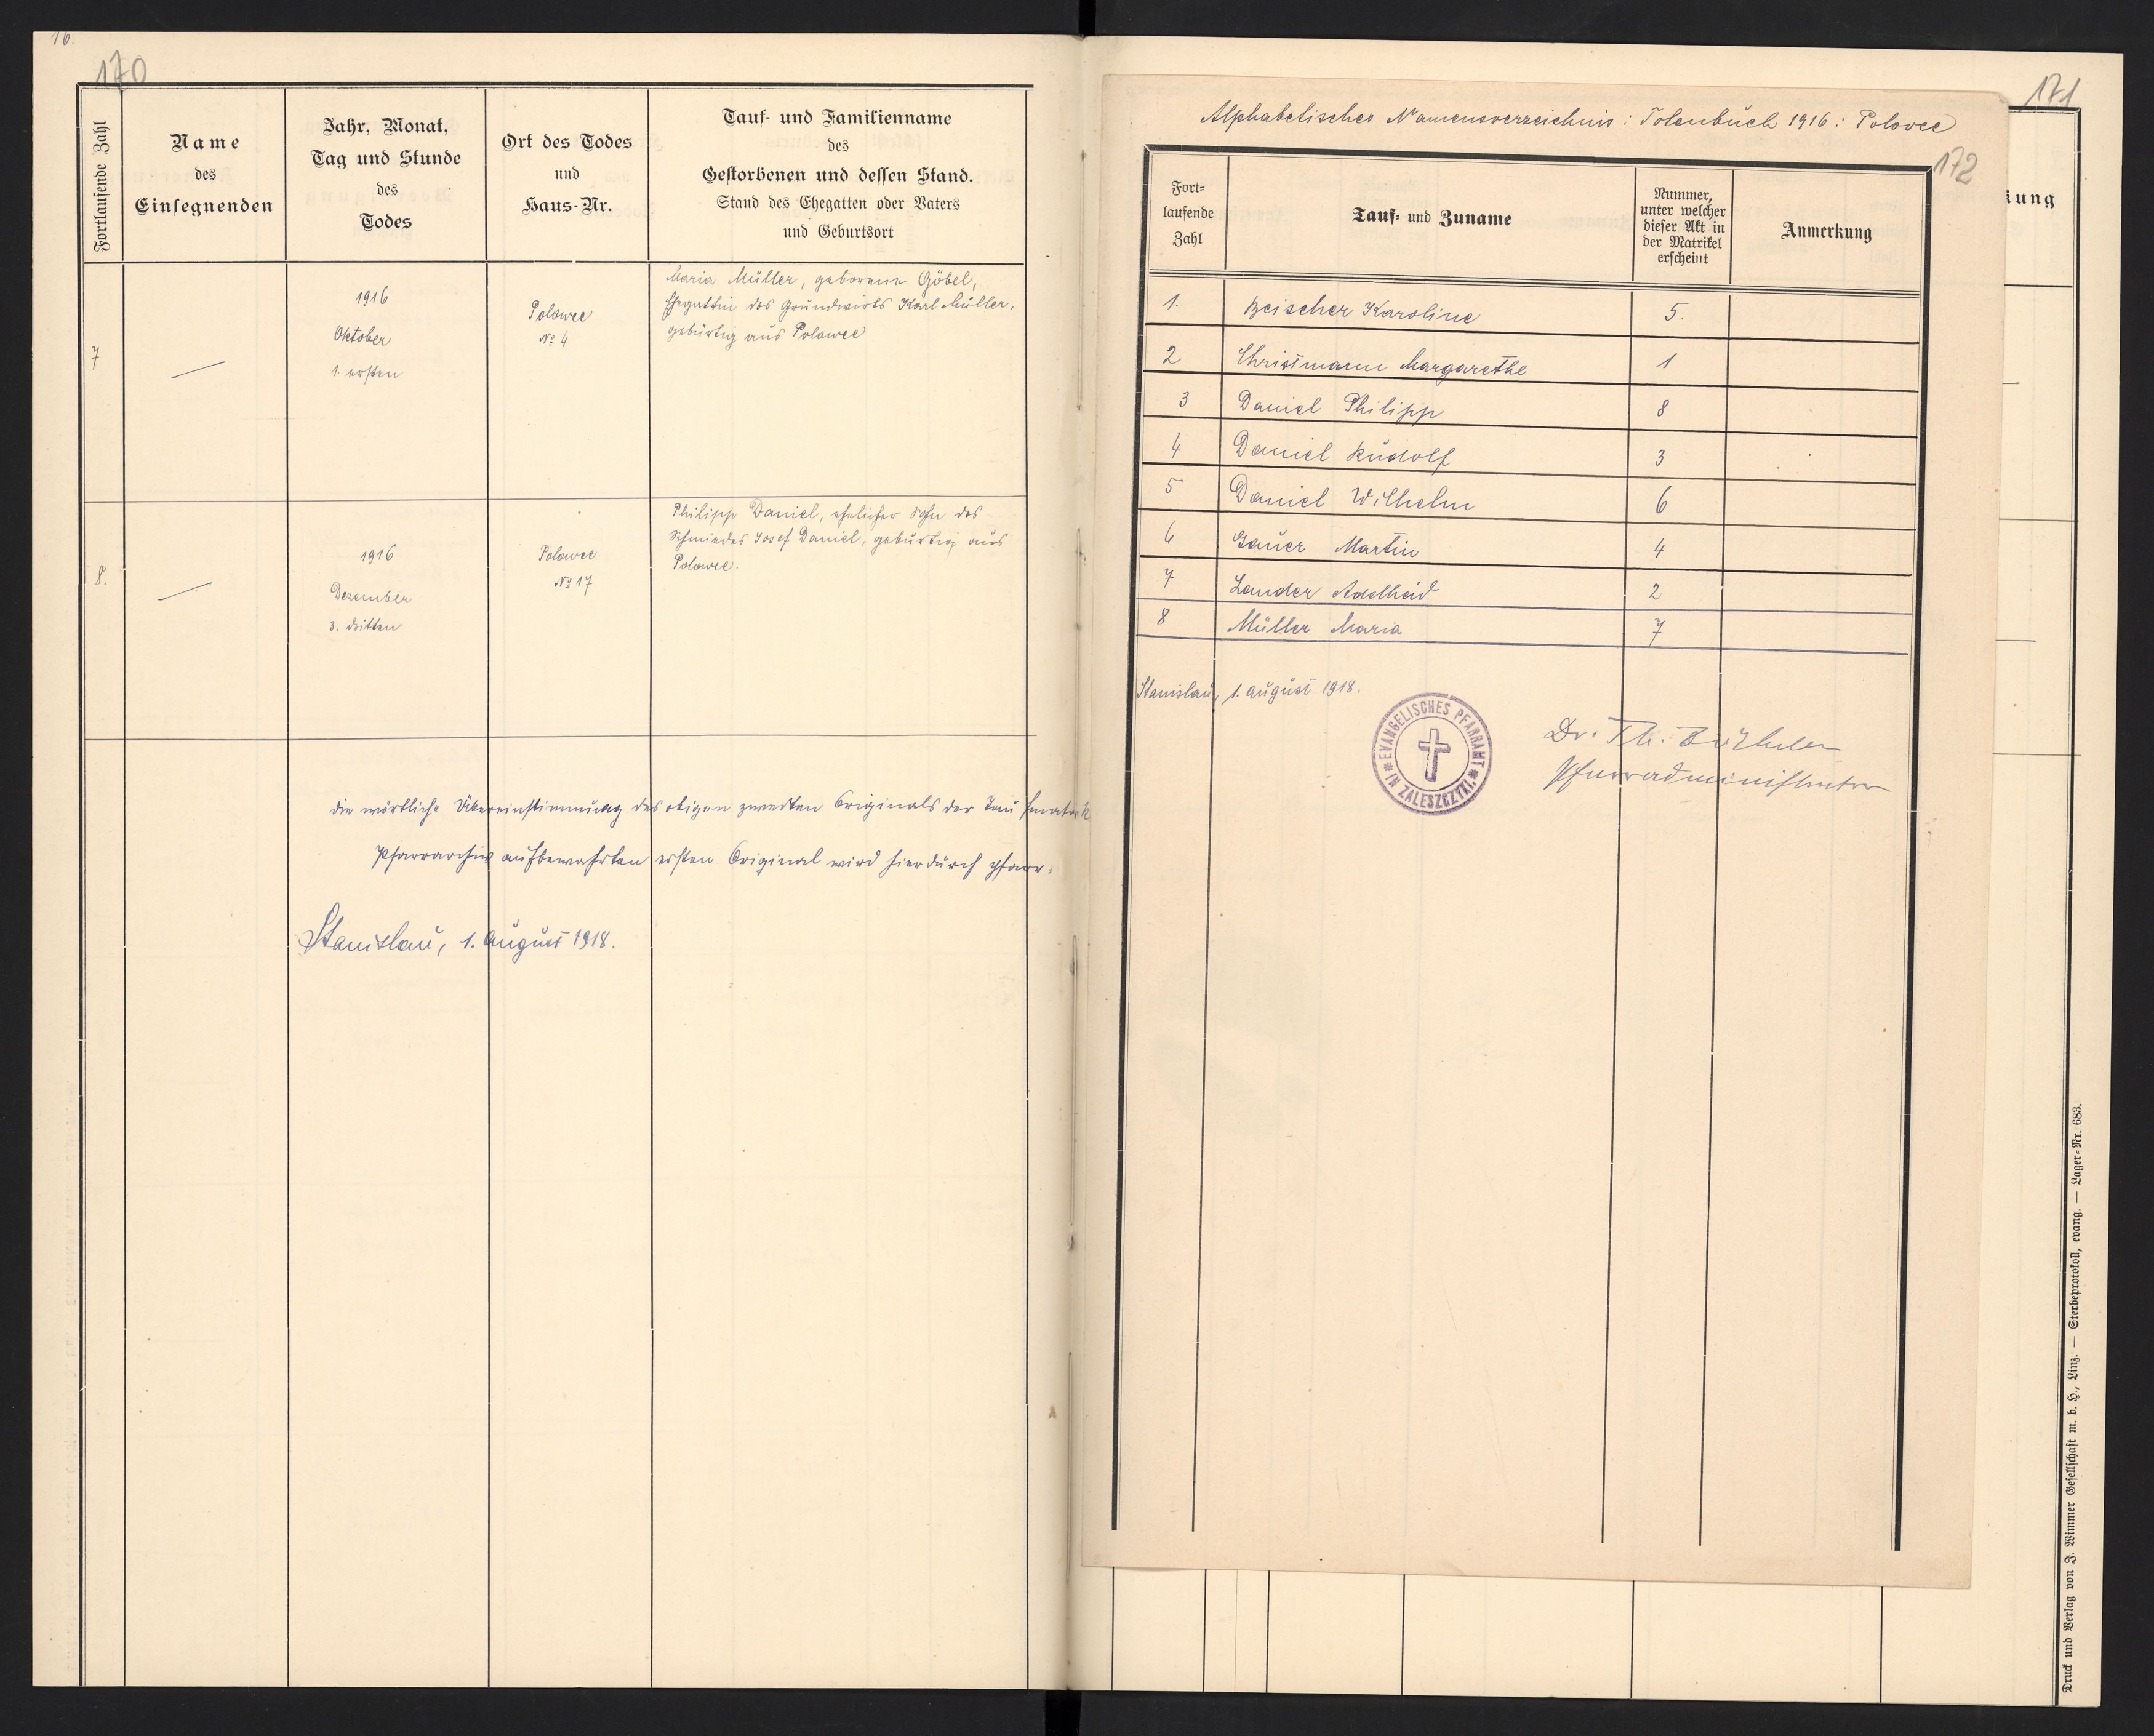 16.
170
Fortlaufende Zahl
Name
des
Einsegnenden
Jahr, Monat,
Tag und Stunde
des
Todes
Ort des Todes
und
Haus-Nr.
Tauf- und Familienname
des
Gestorbenen und dessen Stand.
Stand des Ehegatten oder Vaters
und Geburtsort
7
—
1916
Oktober
1. ersten
Polowce
№ 4
Maria Müller, geborene Göbel,
Ehegattin des Grundwirts Karl Müller,
gebürtig aus Polowce
8.
—
1916
Dezember
3. dritten
Polowce
№ 17
Philipp Daniel, ehelicher Sohn des
Schmiedes Josef Daniel, gebürtig aus
Polowce.
Die wörtliche Übereinstimmung des obigen zweiten Originals der Taufmatrik
Pfarrarchiv aufbewahrten ersten Original wird hierdurch pfarr-
Stanislau, 1. August 1918.
171
kung
Alphabetisches Namensverzeichnis: Totenbuch 1916: Polovce
172
Fort-
laufende
Zahl
Tauf- und Zuname
Nummer,
unter welcher
dieser Akt in
der Matrikel
erscheint
Anmerkung
1. Beischer Karoline 5.
2 Christmann Margarethe 1
3 Daniel Philipp 8
4 Daniel Rudolf 3
5 Daniel Wilhelm 6
6 Gauer Martin 4
7 Lander Adelheid 2
8 Müller Maria 7
Stanislau, 1. August 1918.
EVANGELISCHES PFARRAMT
IN ZALESZCZYKI
Dr. Th.
Pfarradministrator
Druck und Verlag von J. Wimmer Gesellschaft m. b. H., Linz. — Sterbeprotokoll, evang. — Lager-Nr. 683.